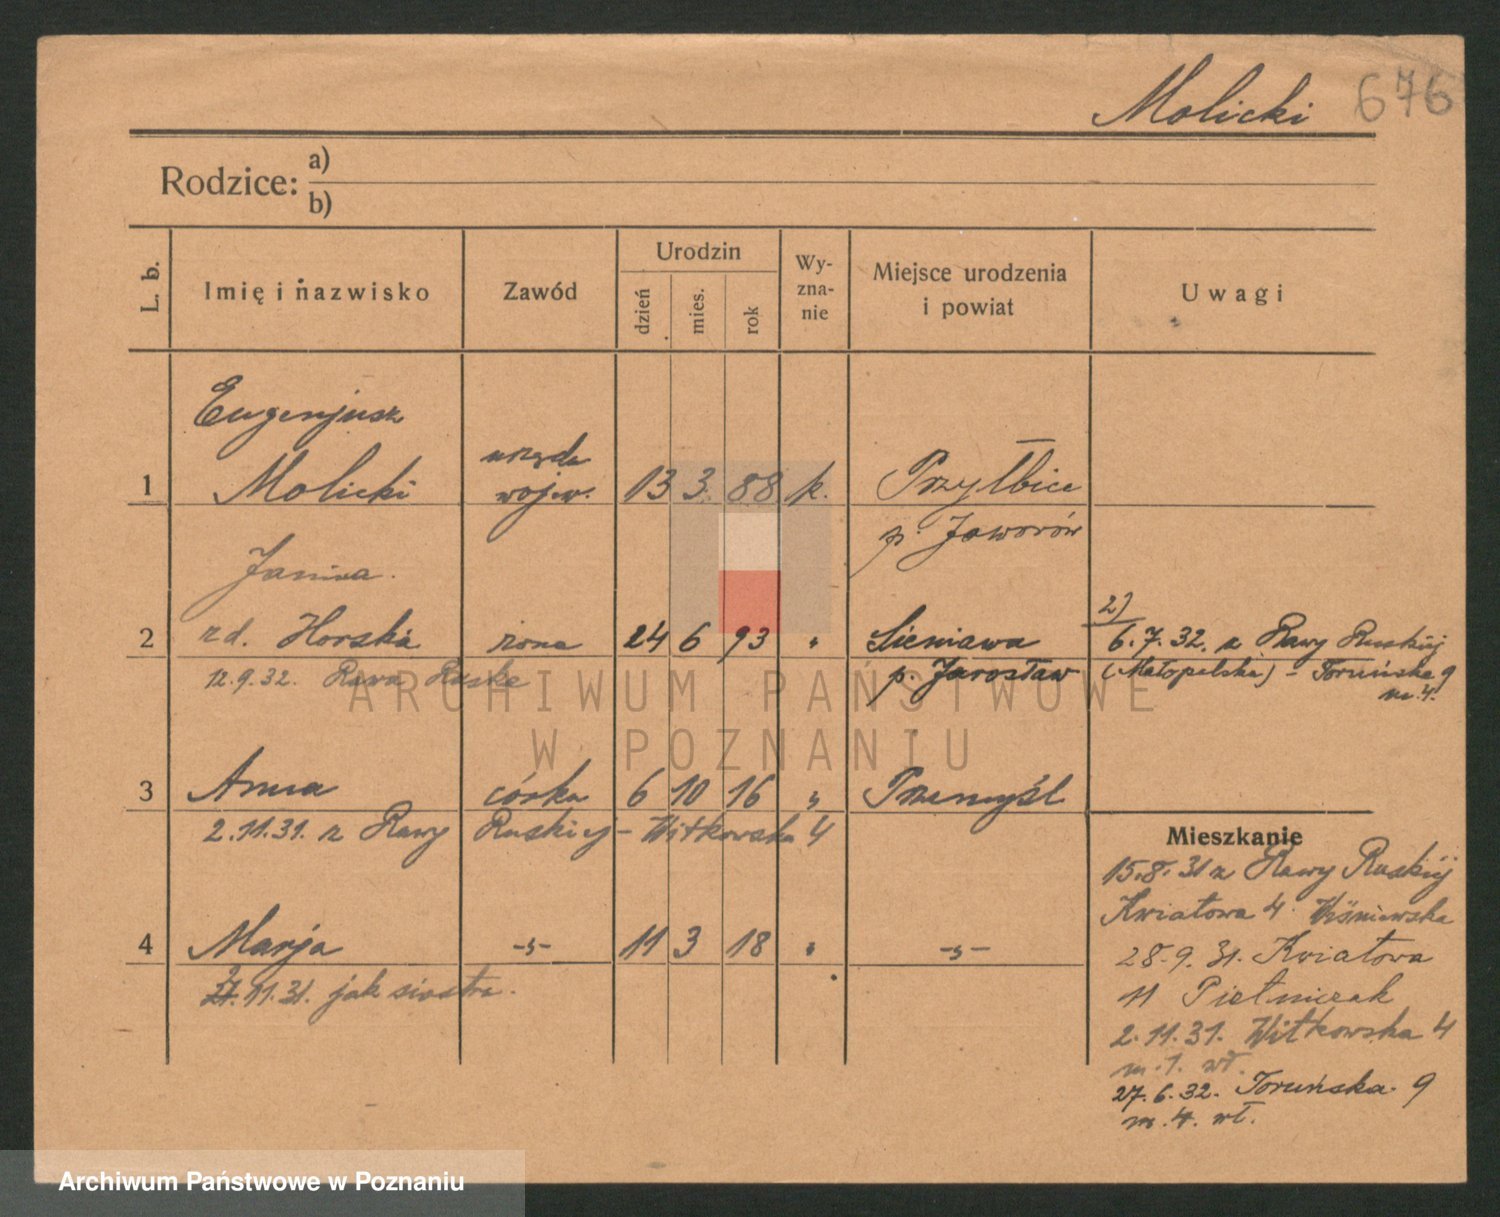 Molicki 676
Rodzice: a)
b)
L. b. Imię i nazwisko Zawód Urodzin dzień mies. rok Wy-zna-nie Miejsce urodzenia i powiat Uwagi
Eugenjusz
1 Molicki urzędn. wojew. 13 3. 88 k. Przyłbice
p. Jaworów
Janina.
2)
2 zd. Horska żona 24 6 93 " Sieniawa 6.7.32. z Rawy Ruskiej
12.9.32. Rawa Ruska p. Jarosław (Małopolska) - Toruńska 9
m. 4.
3 Anna córka 6 10 16 " Przemyśl
2.11.31. z Rawy Ruskiej - Witkowska 4
Mieszkanie
15.8.31 z Rawy Ruskiej
Kwiatowa 4. Wiśniewska
4 Marja -"- 11 3 18 " -"-
2.11.31. jak siostra.
28.9.31. Kwiatowa
11 Pietniczak
2.11.31. Witkowska 4
m. 1. wł.
27.6.32. Toruńska. 9
m. 4. wł.
ARCHIWUM PAŃSTWOWE
W POZNANIU
Archiwum Państwowe w Poznaniu